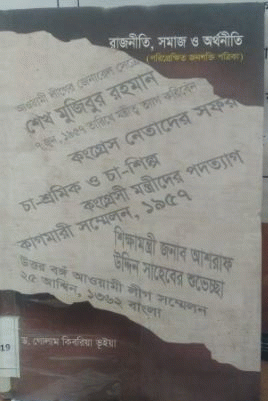 রাজনীতি, সমাজ ও অর্থনীতি
(পরিপ্রেক্ষিত জনশক্তি পত্রিকা)
আওয়ামী লীগের জেনারেল
শেখ মুজিবুর রহমান
৭ জুন, ১৯৫৭ তারিখে মন্ত্রীত্ব ত্যাগ করিবেন
কংগ্রেস নেতাদের সফর
চা-শ্রমিক ও চা-শিল্প
কংগ্রেসী মন্ত্রীদের পদত্যাগ
কাগমারী সম্মেলন, ১৯৫৭
শিক্ষামন্ত্রী জনাব আশরাফ
উদ্দিন সাহেবের শুভেচ্ছা
উত্তর বঙ্গ আওয়ামী লীগ সম্মেলন
২৫ আশ্বিন, ১৩৬২ বাংলা
19
ড. গোলাম কিবরিয়া ভূইয়া